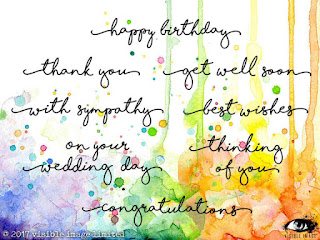 happy birthday
thank you
get well soon
with sympathy
best wishes
on your
wedding day
thinking
of you
congratulations
© 2017 visible image limited
VISIBLE IMAGE